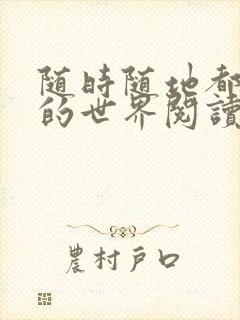 随時随地都
的世界閱讀
農村戶口